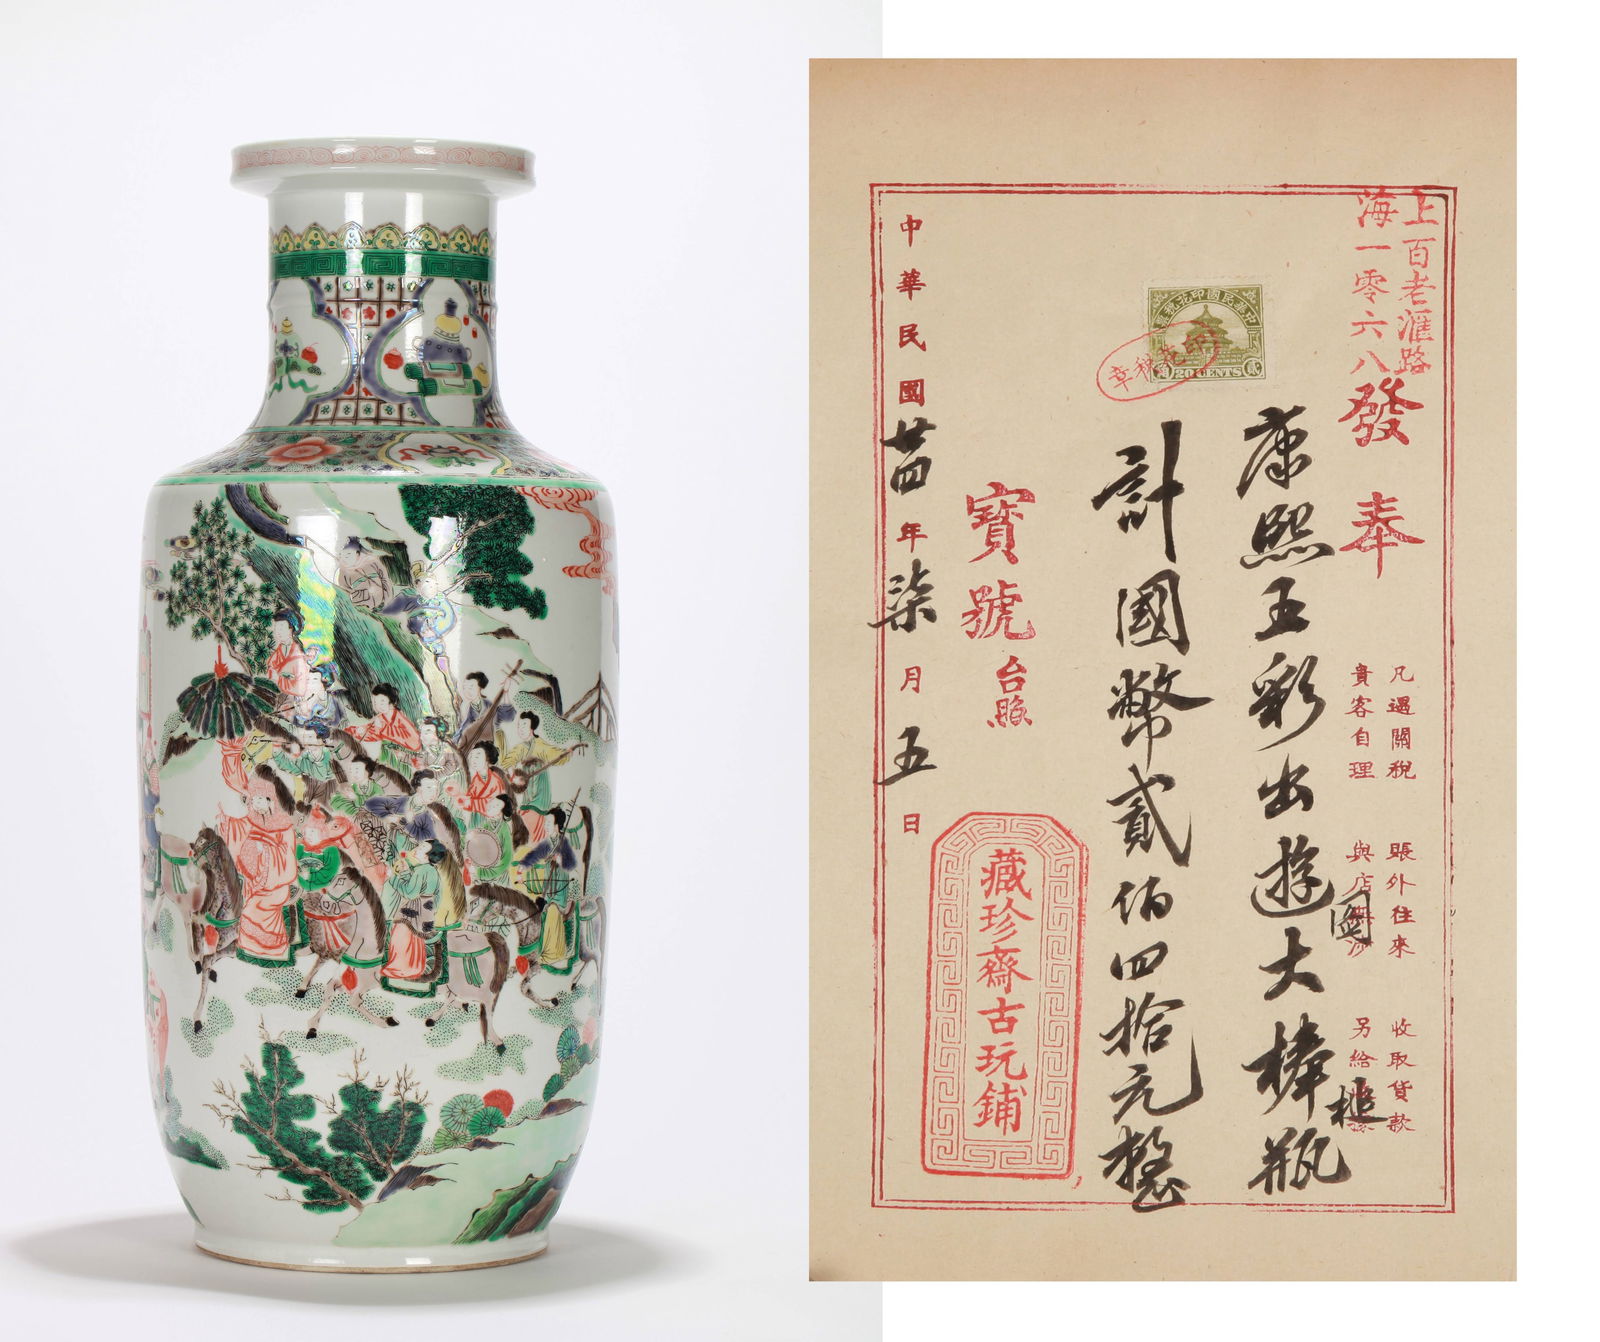 上百老滙路
海一零六八
發奉
凡遇關稅 賬外往來 收取貨款
貴客自理 與店 另給
康熙五彩出遊圖大棒槌瓶
中華民國印花稅票
20 CENTS
貳
角
印花稅章
計國幣貳佰四拾元整
寶號台照
藏珍齋古玩鋪
中華民國廿四年柒月五日